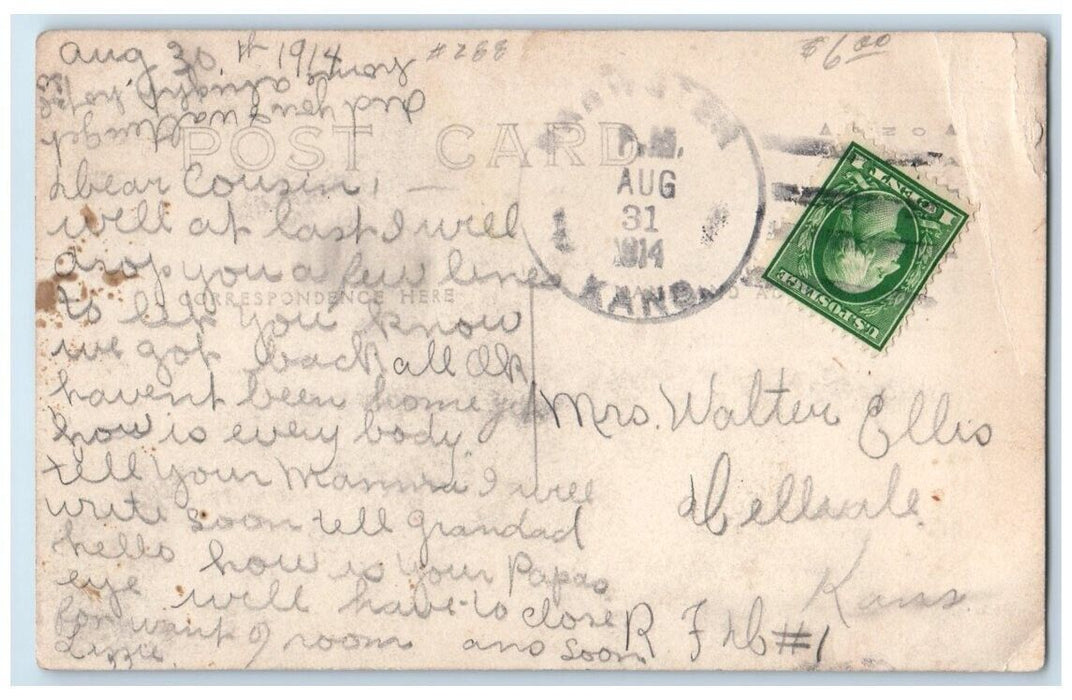 Aug 30.th 1914
#268
$6.00
POST CARD
P.M.
AUG
31
1914
KANS.
U.S. POSTAGE
1 CENT 1
CORRESPONDENCE HERE
Dear Cousin, —
will at last I will
drop you a few lines
to let you know
we got back all Ok
havent been home yet
how is every body.
tell your Mamma I will
write soon tell grandad
hello how is your Papas
eye will have to close
for want of room ans soon
Lizzie
Mrs. Walter Ellis
Kans.
R F D #1